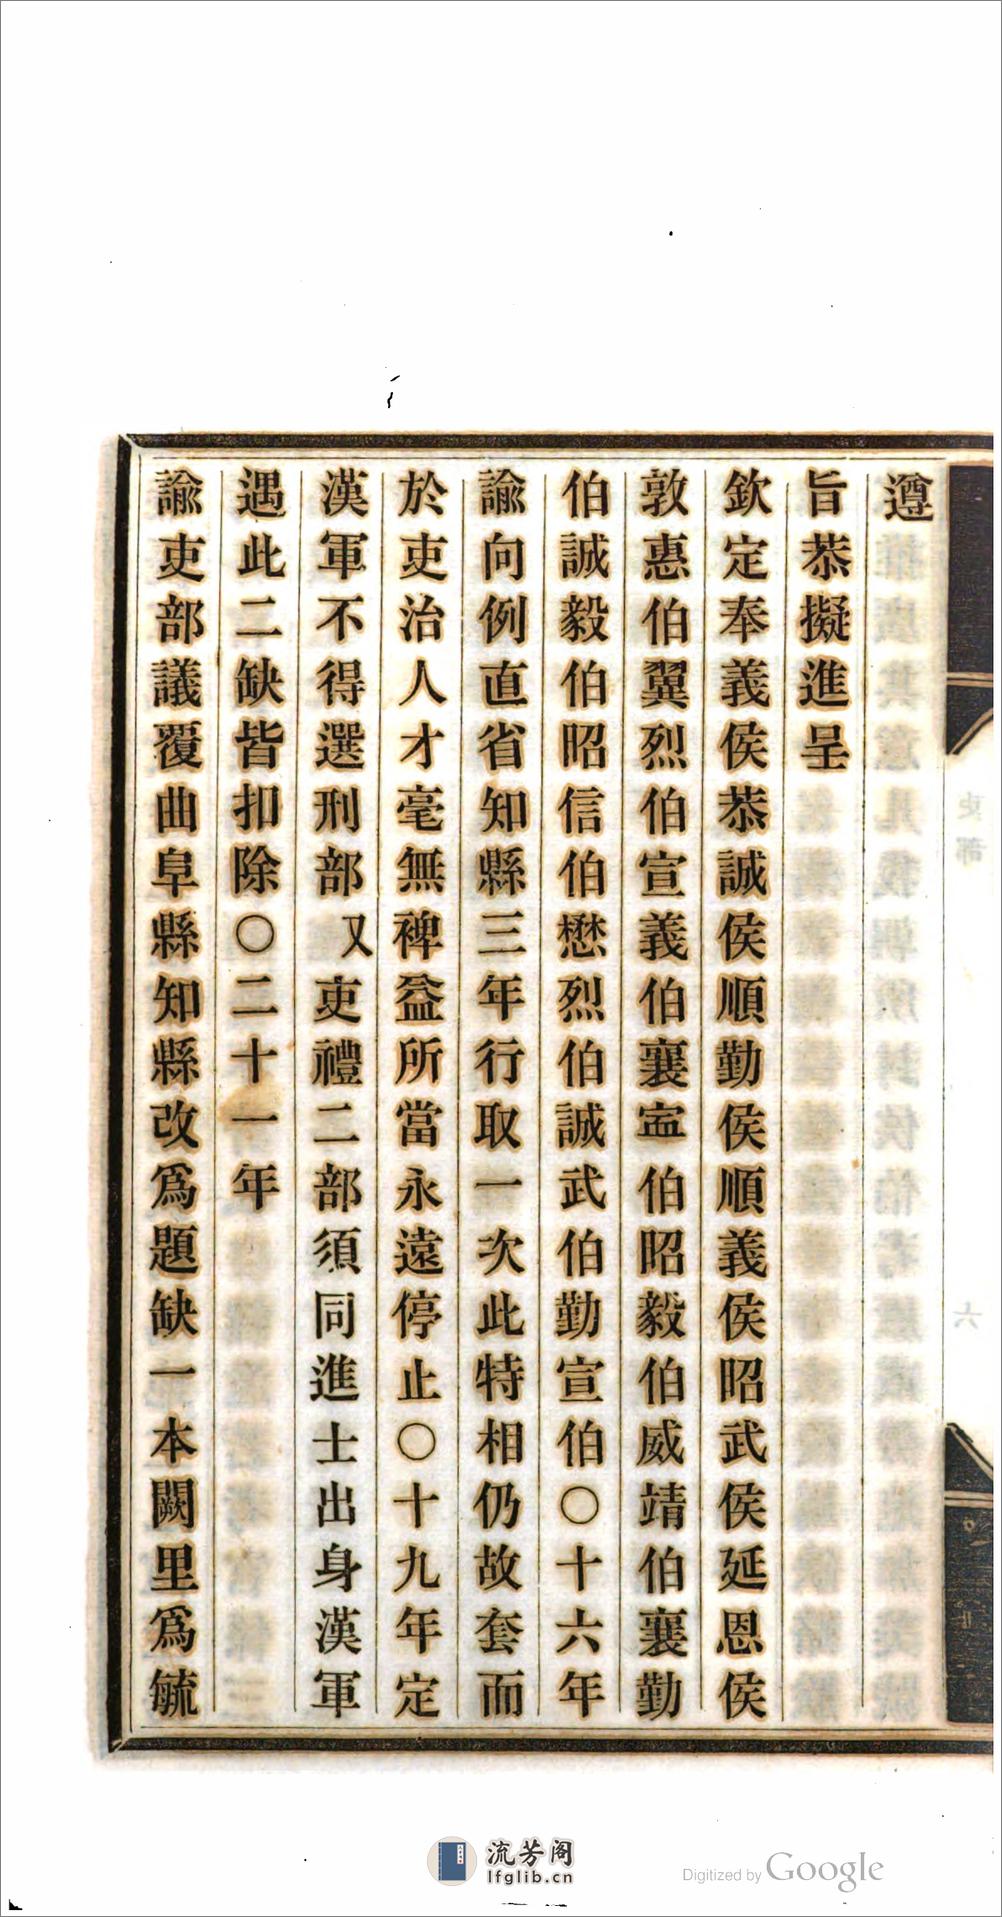 遵
旨恭擬進呈
欽定奉義侯恭誠侯順勤侯順義侯昭武侯延恩侯
敦惠伯翼烈伯宣義伯襄寍伯昭毅伯威靖伯襄勤
伯誠毅伯昭信伯懋烈伯誠武伯勤宣伯〇十六年
諭向例直省知縣三年行取一次此特相仍故套而
於吏治人才毫無裨益所當永遠停止〇十九年定
漢軍不得選刑部又吏禮二部須同進士出身漢軍
遇此二缺皆扣除〇二十一年
諭吏部議覆曲阜縣知縣改爲題缺一本闕里爲毓
吏部
六
流芳阁
lfglib.cn
Digitized by Google